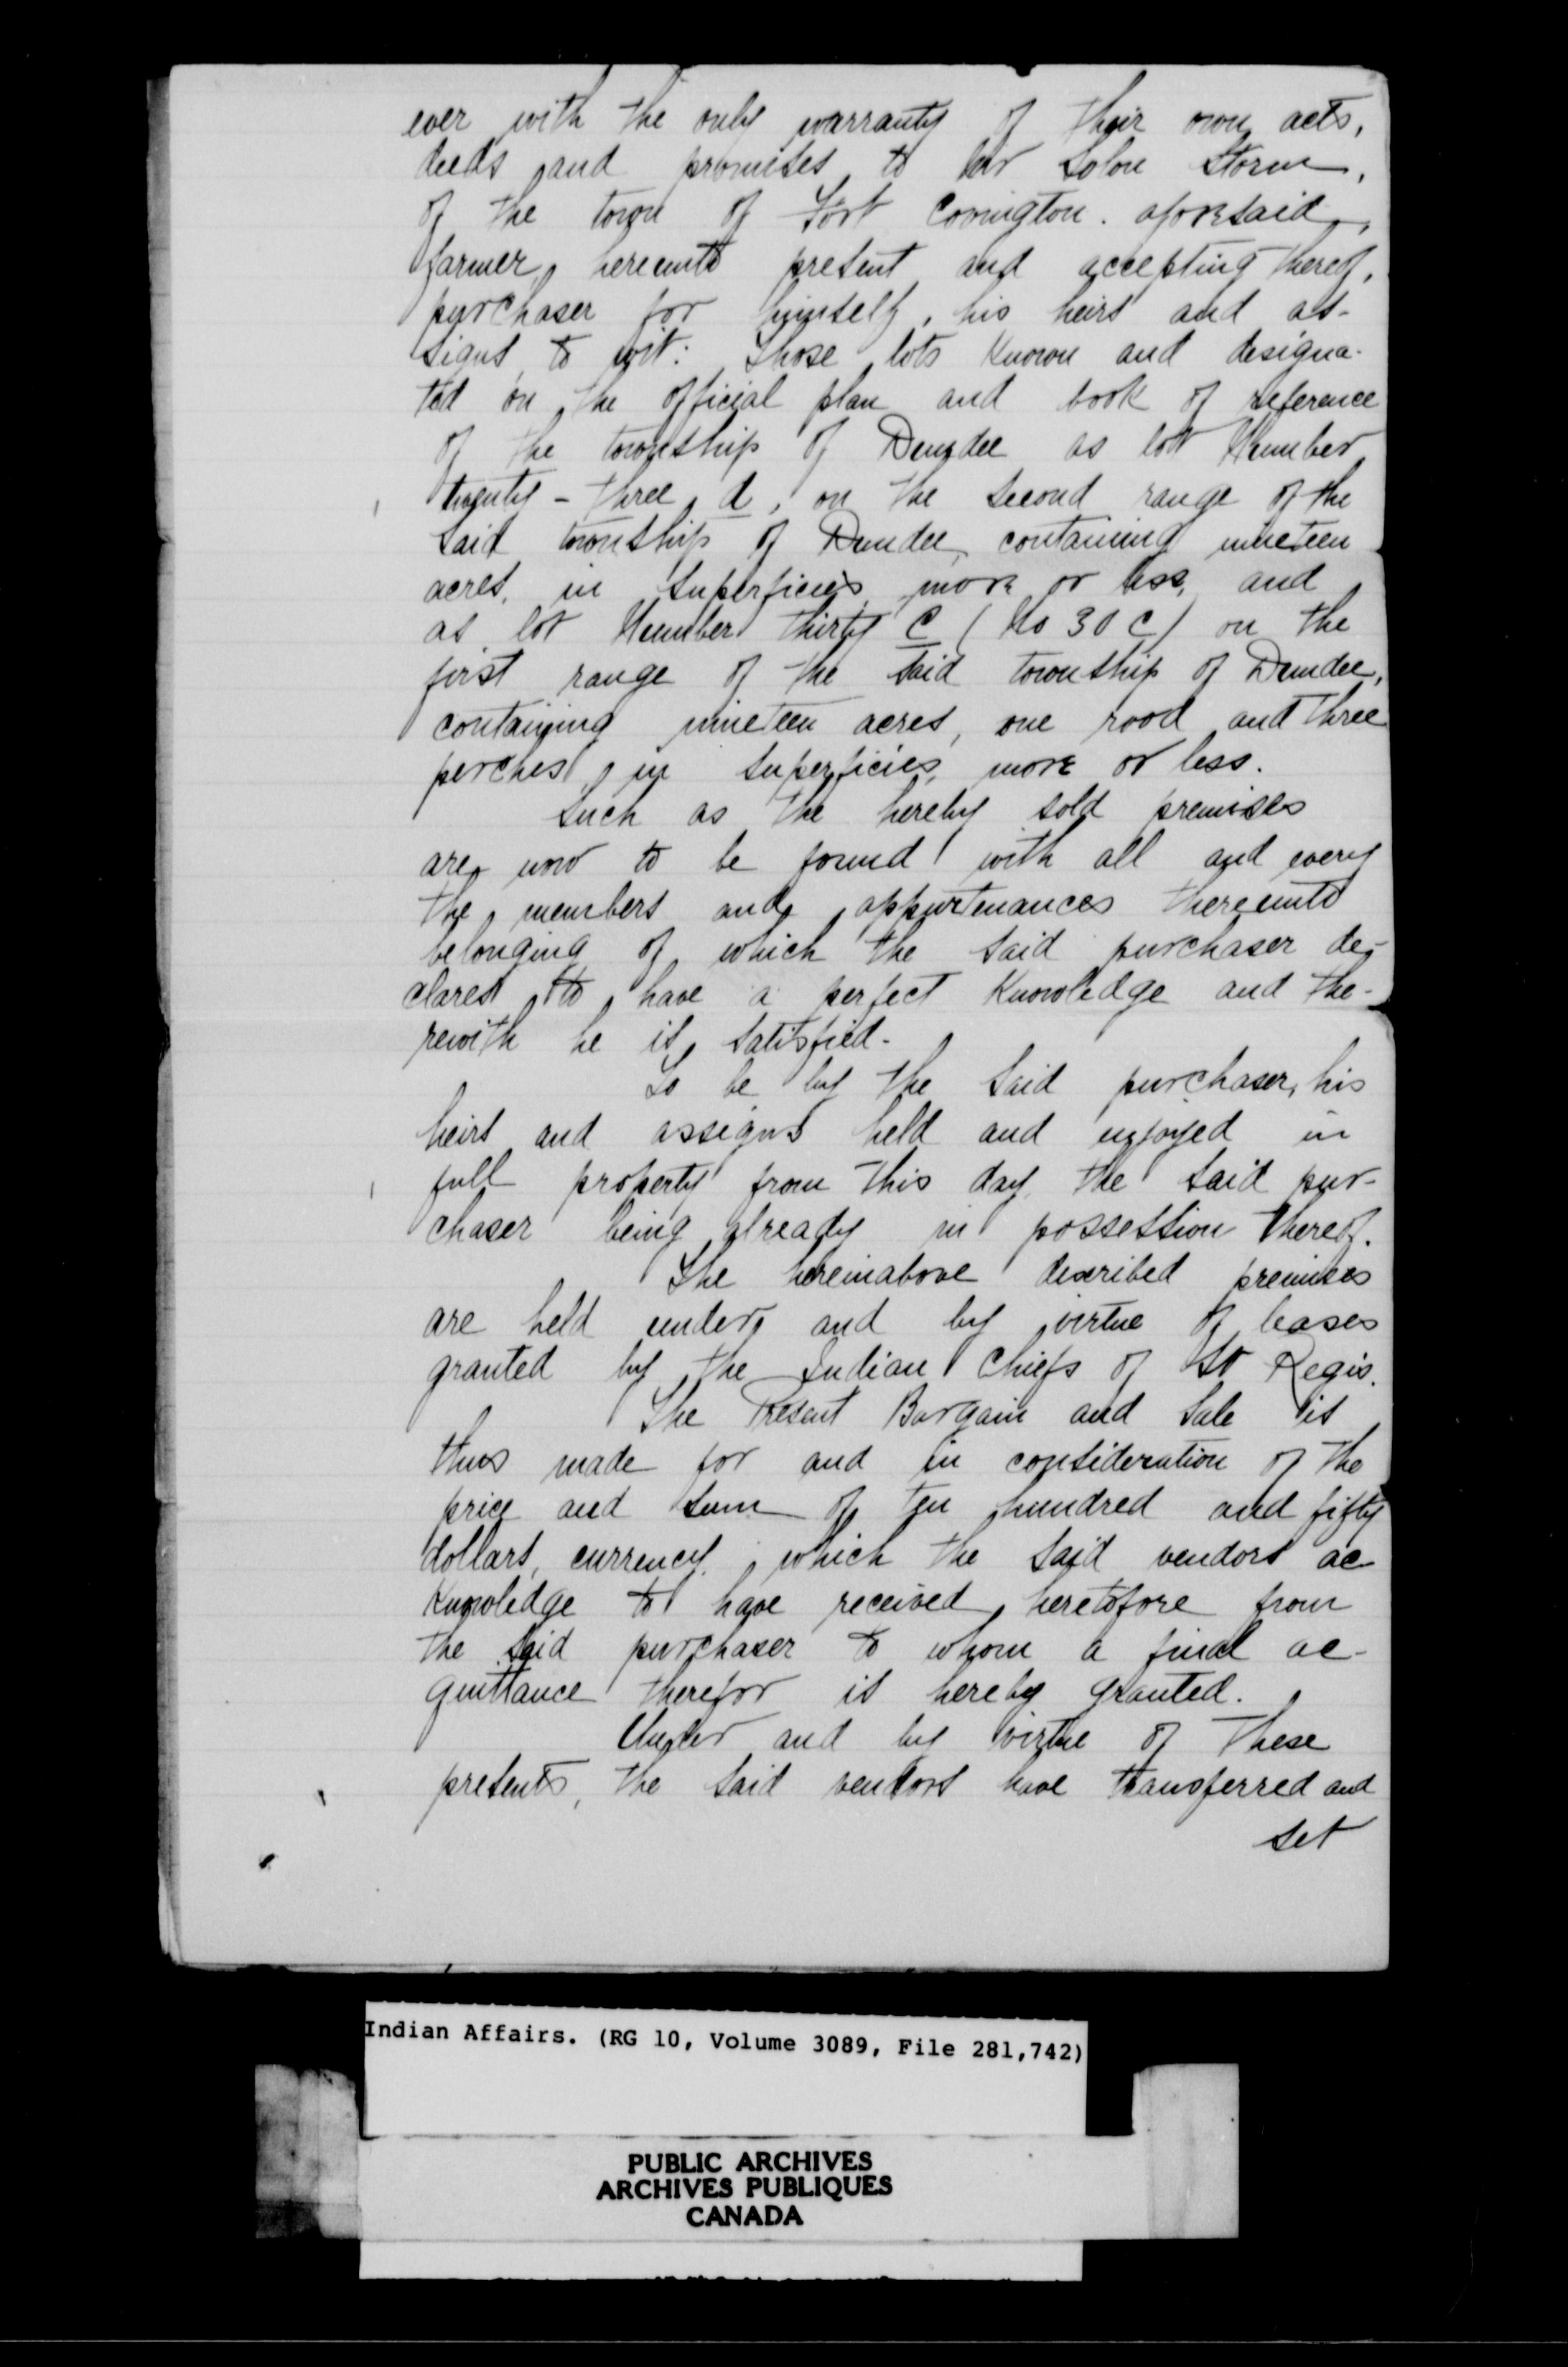 ever with the only warranty of their own acts,
deeds and promises to Mr Solon Storm,
of the town of Fort Covington aforesaid,
farmer, hereunto present and accepting thereof,
purchaser for himself, his heirs and as-
signs to wit: Those lots known and designa-
ted on the official plan and book of reference
of the township of Dundee as lot Number
twenty-three d, on the second range of the
said township of Dundee, containing nineteen
acres, in superficies more or less, and
as lot Number thirty C (No 30 C) on the
first range of the said township of Dundee,
containing nineteen acres, one rood and three
perches, in superficies, more or less.
Such as the hereby sold premises
are now to be found with all and every
the members and appurtenances thereunto
belonging of which the said purchaser de-
clares to have a perfect knowledge and the-
rewith he is satisfied.
To be by the said purchaser, his
heirs and assigns held and enjoyed in
full property from this day, the said pur-
chaser being already in possession thereof.
The hereinabove described premises
are held under and by virtue of leases
granted by the Indian Chiefs of St Regis.
The Present Bargain and Sale is
thus made for and in consideration of the
price and sum of ten hundred and fifty
dollars, currency, which the said vendors ac
knowledge to have received heretofore from
the said purchaser to whom a final ac-
quittance therefor is hereby granted.
Under and by virtue of these
presents, the said vendors have transferred and
set
Indian Affairs. (RG 10, Volume 3089, File 281,742)
PUBLIC ARCHIVES
ARCHIVES PUBLIQUES
CANADA